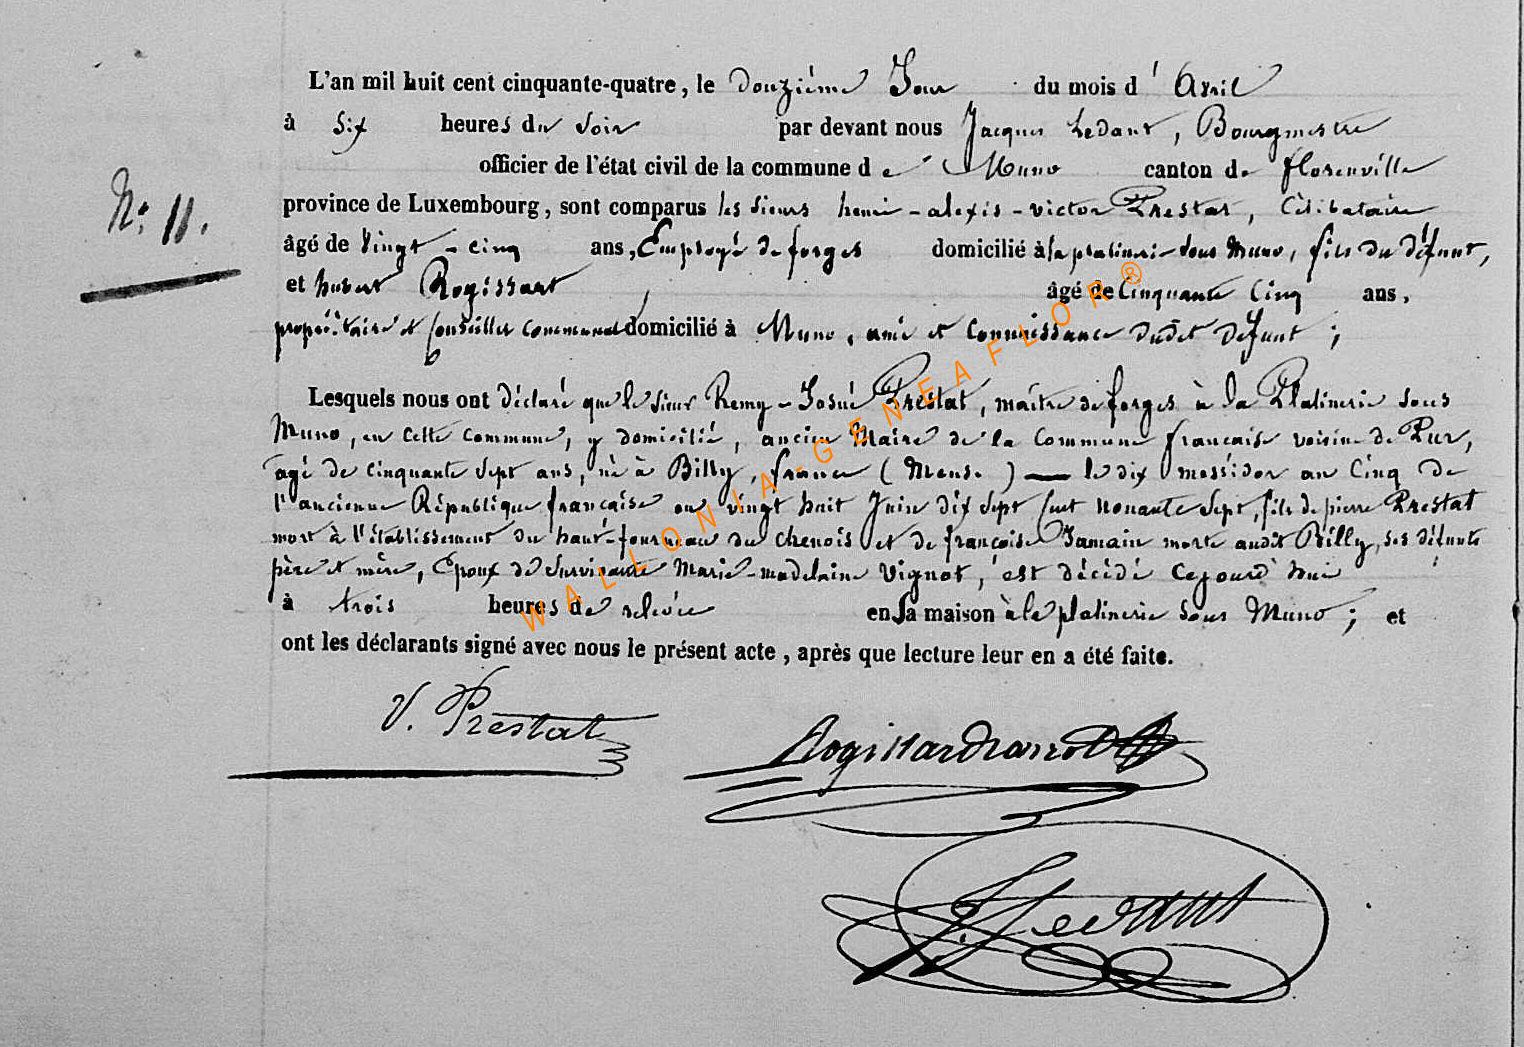 L'an mil huit cent cinquante-quatre, le douzième Jour du mois d' Avril
à Six heures du Soir par devant nous Jacques Ledant, Bourgmestre
officier de l'état civil de la commune de Muno canton de florenville
province de Luxembourg, sont comparus les sieurs henri-alexis-victor Prestat, Célibataire
âgé de Vingt-cinq ans, Employé de forges domicilié à la platinerie sous Muno, fils du défunt,
N° 11.
et hubert Rogissart âgé de Cinquante Cinq ans,
propriétaire et Conseiller communal domicilié à Muno, ami et Connaissance dudit défunt ;
Lesquels nous ont déclaré que le sieur Remy-Josué Prestat, maître de forges à la Platinerie sous
Muno, en cette commune, y domicilié, ancien Maire de la Commune française voisine de Pur,
agé de cinquante sept ans, né à Billy, france (Meuse) — le dix messidor an Cinq de
l'ancienne République française ou vingt huit Juin dix sept Cent nonante sept, fils de pierre Prestat
mort à l'établissement du haut-fourneau du chenois et de françoise Jamain morte audit Billy, ses défunts
père et mère, Epoux de survivante Marie-madelaine Vignot, est décédé Cejourd'hui
à trois heures de relevée en sa maison à la platinerie sous Muno ; et
ont les déclarants signé avec nous le présent acte, après que lecture leur en a été faite.
V. Prestat
J. Ledant
WALLONIA-GENEAFLOR®